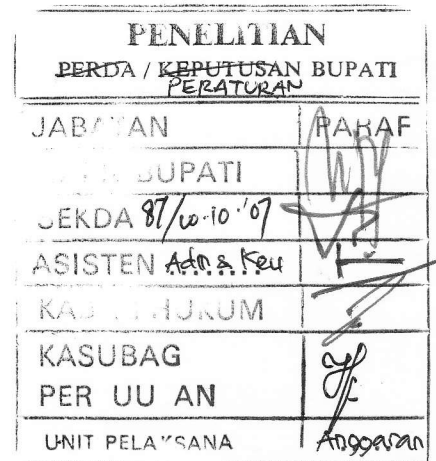 PENELITIAN
PERDA / KEPUTUSAN BUPATI
PERATURAN
JABATAN PARAF
BUPATI
SEKDA 87/
ASISTEN Adm & Keu
HUKUM
KASUBAG
PER UU AN
UNIT PELAKSANA Anggaran